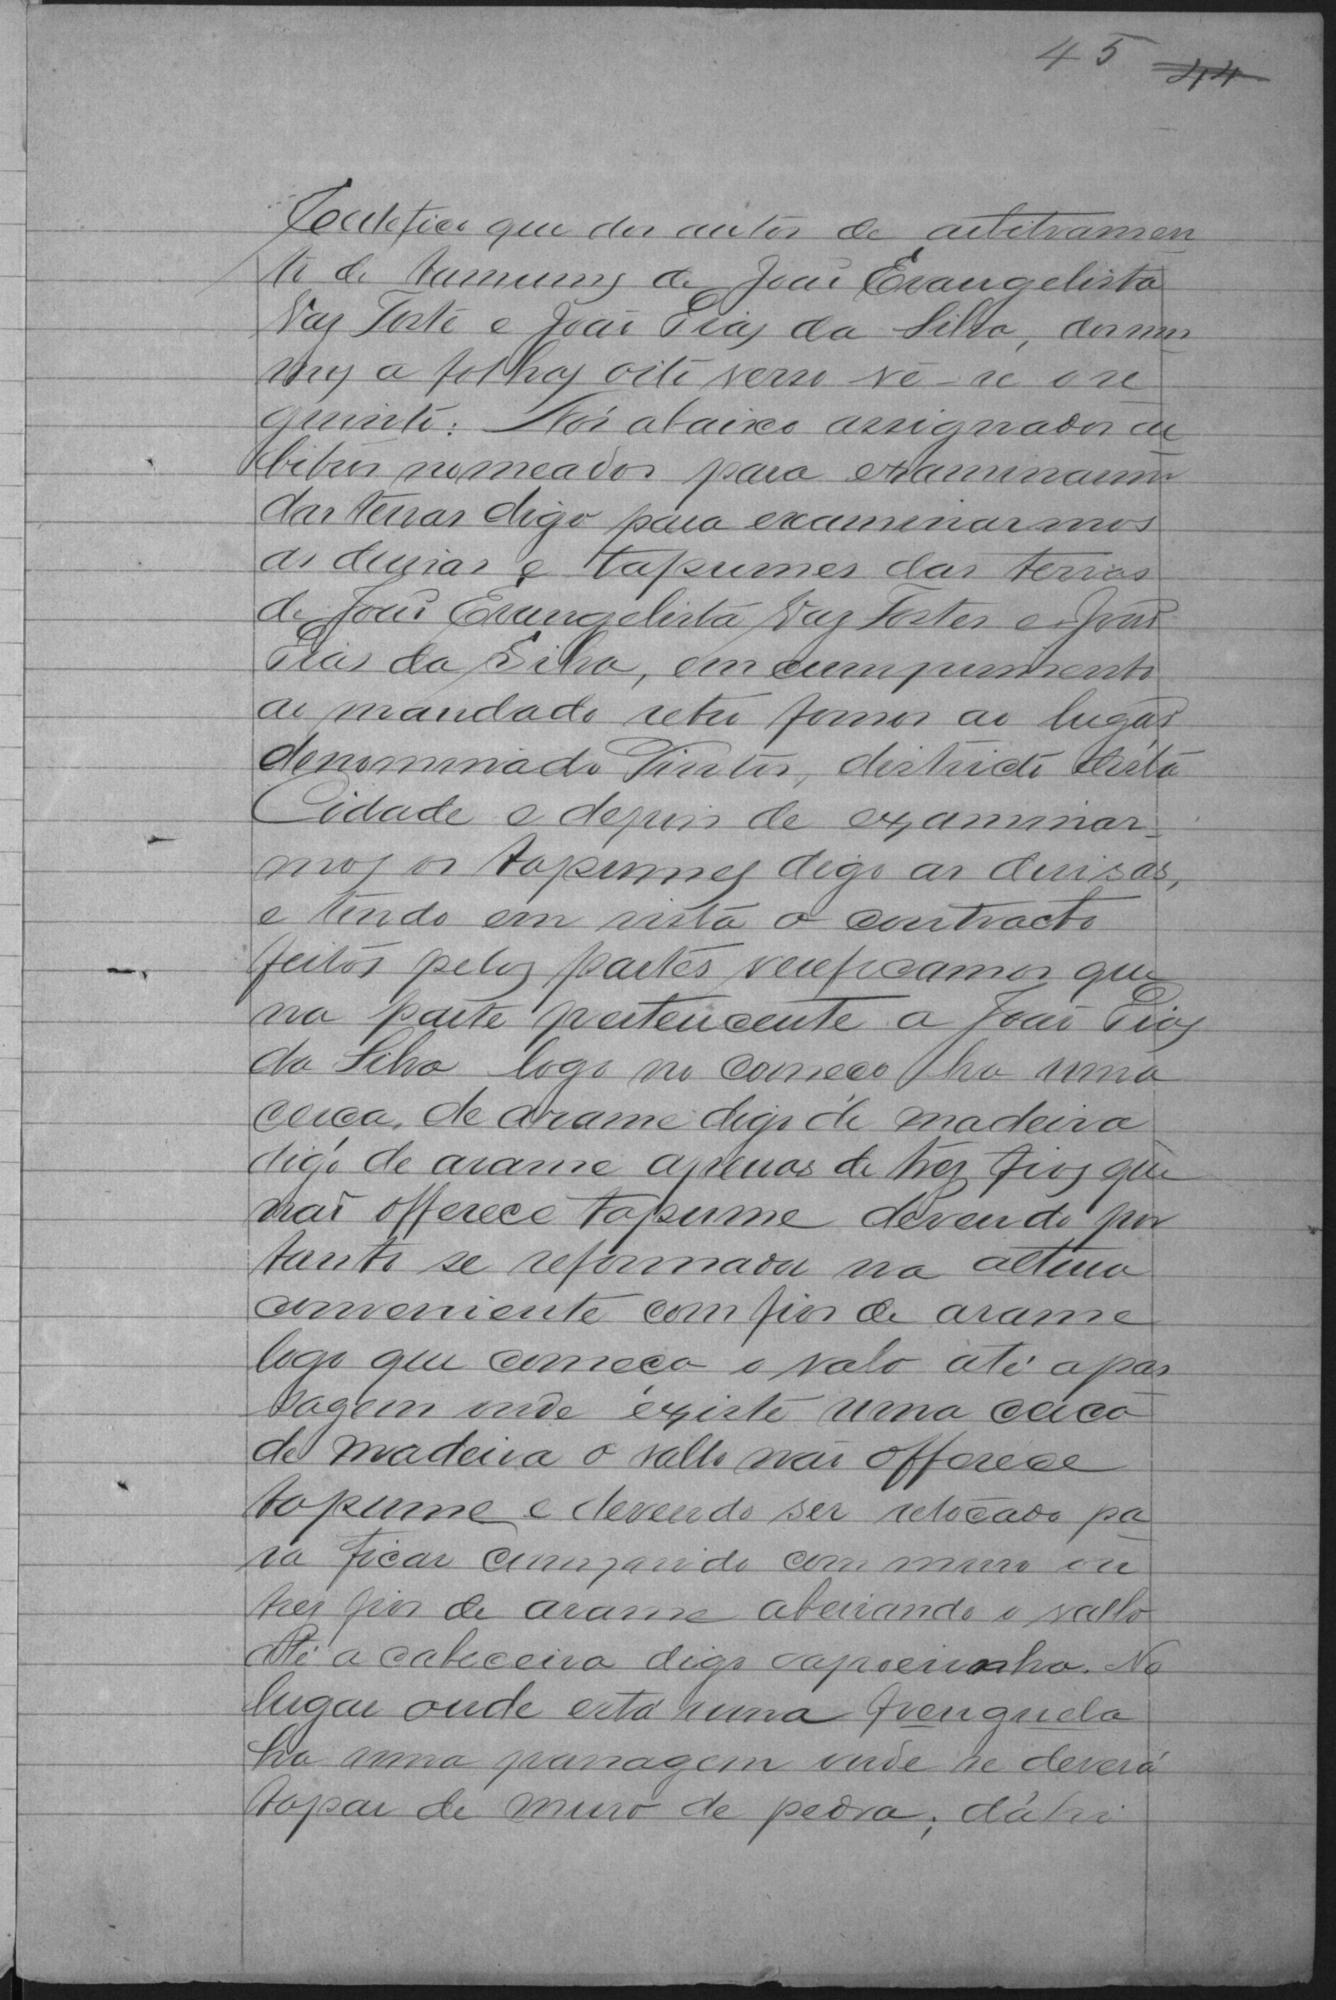 45 44
Certifico que dos autos de arbitramen
to de tapumes de João Evangelista
Vaz Torte e João Dias da Silva, dos mes
mos a folhas oito verso vê-se o se
guinte: Nós abaixo assignados ar
bitros nomeados para examinarmos
das terras digo para examinarmos
as divisas e tapumes das terras
de João Evangelista Vaz Tortes e João
Dias da Silva, em cumprimento
ao mandado retro fomos ao lugar
denominado Pintos, districto desta
Cidade e depois de examinar-
mos os tapumes digo as divisas,
e tendo em vista o contracto
feitos pelas partes verificamos que
na parte pertencente a João Dias
da Silva logo no começo ha uma
cerca de arame digo de madeira
digo de arame apenas de tres fios que
não offerece tapume devendo por
tanto se reformada na altura
conveniente com fios de arame
logo que começa o valo até a pas
sagem onde existe uma cerca
de madeira o vallo não offerece
tapume e devendo ser retocado pa
ra ficar comparido com muro ou
tres fios de arame abeirando o vallo
até a cabeceira digo capoeirinha. No
lugar onde está uma
ha uma passagem onde se deverá
tapar de muro de pedra; d'ahi